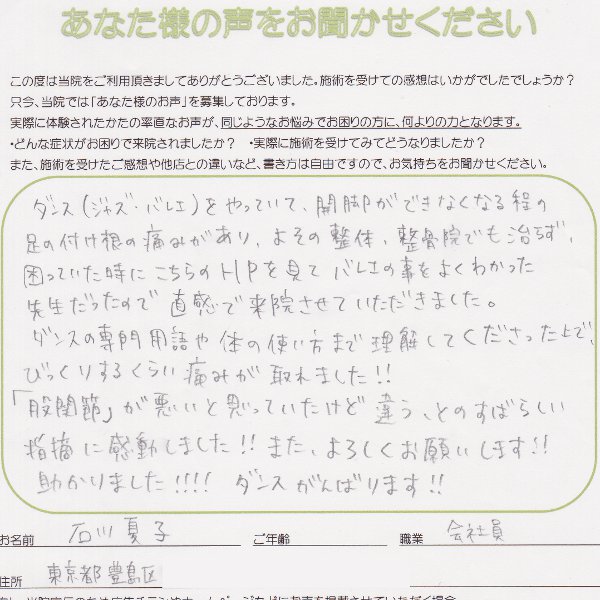 あなた様の声をお聞かせください
この度は当院をご利用頂きましてありがとうございました。施術を受けての感想はいかがでしたでしょうか？
只今、当院では「あなた様のお声」を募集しております。
実際に体験されたかたの率直なお声が、同じようなお悩みでお困りの方に、何よりの力となります。
・どんな症状がお困りで来院されましたか？　・実際に施術を受けてみてどうなりましたか？
また、施術を受けたご感想や他店との違いなど、書き方は自由ですので、お気持ちをお聞かせください。
ダンス(ジャズ・バレエ)をやっていて、開脚ができなくなる程の
足の付け根の痛みがあり、よその整体、整骨院でも治らず、
困っていた時にこちらのHPを見てバレエの事をよくわかった
先生だったので直感で来院させていただきました。
ダンスの専門用語や体の使い方まで理解してくださった上で、
びっくりするくらい痛みが取れました!!
「股関節」が悪いと思っていたけど違う、とのすばらしい
指摘に感動しました!! また、よろしくお願いします!!
助かりました!!!! ダンスがんばります!!
お名前 石川夏子 ご年齢 職業 会社員
住所 東京都豊島区